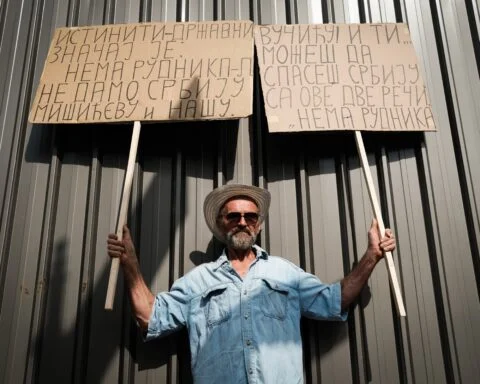 ИСТИНИТИ-ДРЖАВНИ
ЗНАЧАЈ ЈЕ:
„НЕМА РУДНИКА-Л
НЕ ДАМО СРБИЈУ
МИШИЋЕВУ И НАШУ
ВУЧИЋУ! И ТИ...
МОЖЕШ ДА
СПАСЕШ СРБИЈУ
СА ОВЕ ДВЕ РЕЧИ
„НЕМА РУДНИКА